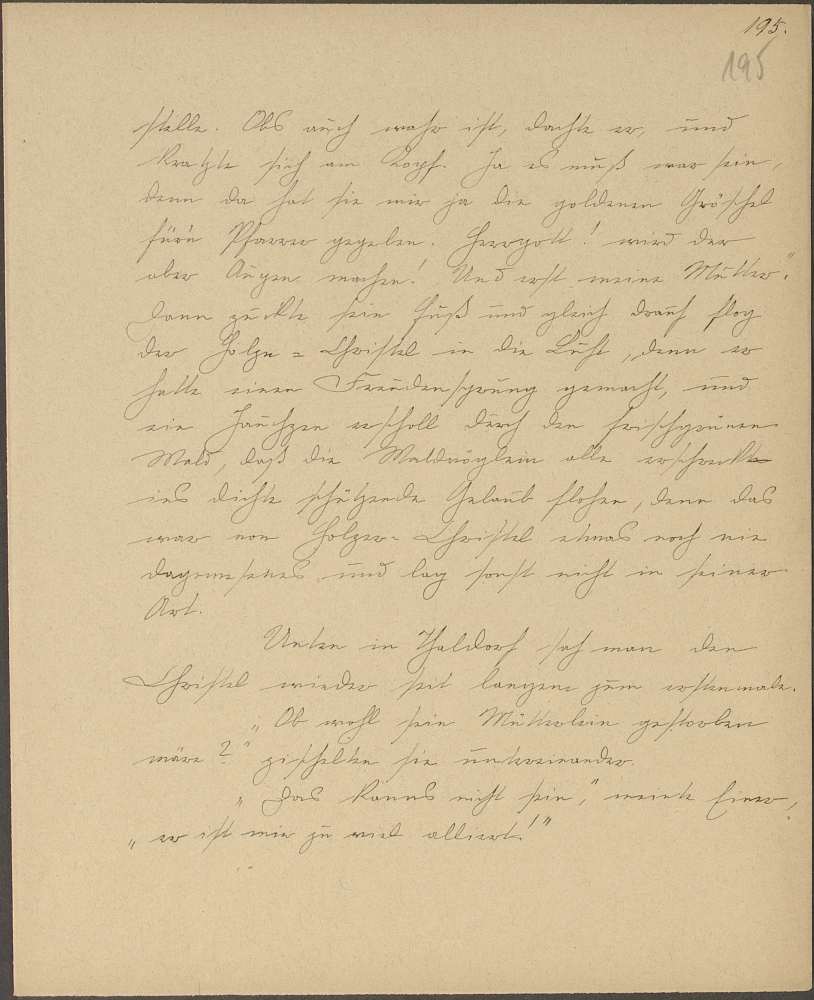 195.
195
stelle. Obs auch wahr ist, dachte er, und
kratzte sich am Kopf. Ja es muß war sein,
denn da hat sie mir ja die goldenen Gröschel
für'n Pfarrer gegeben. Herrgott! wird der
aber Augen machen! Und erst meine Mutter."
Dann zuckte sein Fuß und gleich drauf flog
der Holzer-Christel in die Luft, denn er
hatte einen Freudensprung gemacht, und
ein Jauchzen erscholl durch den frischgrünen
Wald, daß die Waldvöglein alle erschreckt
ins dichte schützende Gelaub flohen, denn das
war vom Holzer-Christel etwas noch nie
dagewesenes und lag sonst nicht in seiner
Art.
Unten in Thaldorf sah man den
Christel wieder seit langem zum erstenmale.
„Ob wohl sein Mütterlein gestorben
wäre?" zischelten sie untereinander.
„Das kanns nicht sein," meinte Einer,
„er ist mir zu viel alliert!"